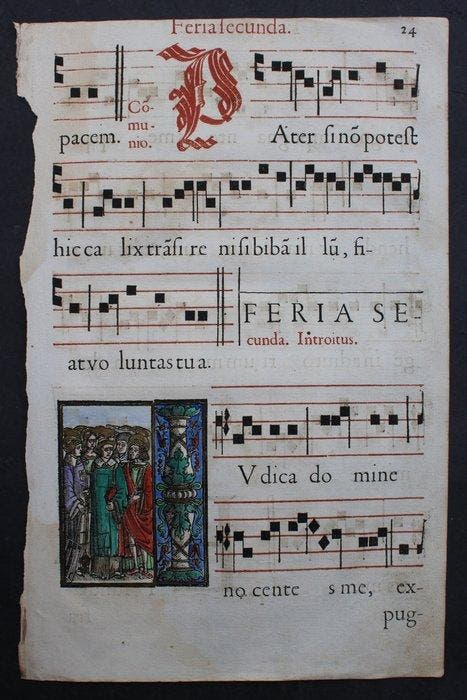 Feria secunda.
24
pacem.
Cō-
mu-
nio.
P Ater si nō potest
hic ca lix trāsi re nisi bibā il lū, fi-
at vo luntas tua.
FERIA SE-
cunda. Introitus.
V dica do mine
no cente s me, ex-
pug-